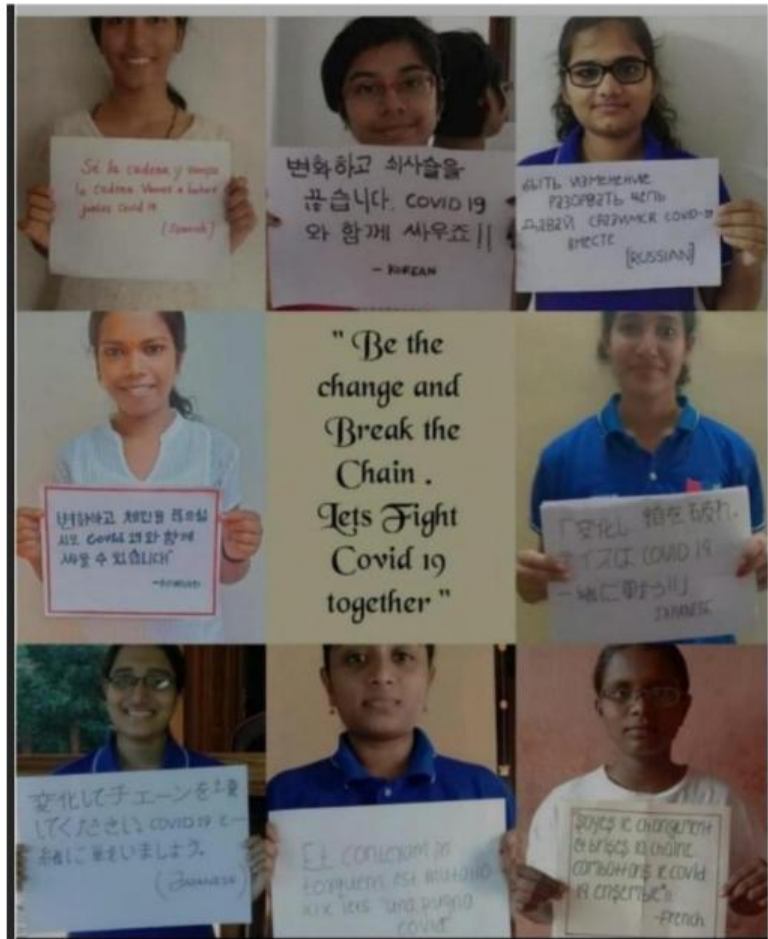 Sé la cadena y rompe
la cadena. Vamos a
juntos covid 19
[Spanish]
변화하고 쇠사슬을
끊습니다. COVID 19
와 함께 싸우죠!!
- KOREAN
БЫТЬ ИЗМЕНЕНИЕ
РАЗОРВАТЬ ЧЕПЬ
ДАВАЙ СРАЗИМСЯ COVID-19
ВМЕСТЕ
[RUSSIAN]
변화하고 체인을 끊으십
시오 Covid 19와 함께
싸울 수 있습니다"
" Be the
change and
Break the
Chain .
Lets Fight
Covid 19
together "
「変化し 鎖を破れ.
COVID 19
一緒に
JAPANESE
変化してチェーンを
してください. COVID 19 と一
緒に戦いましょう.
(Japanese)
Et conteram in
torquem est mutatio
xix lets una pugna
covid"
Soyez le changement
et brises la chaîne
combattons le covid
19 ensemble"!!
-French